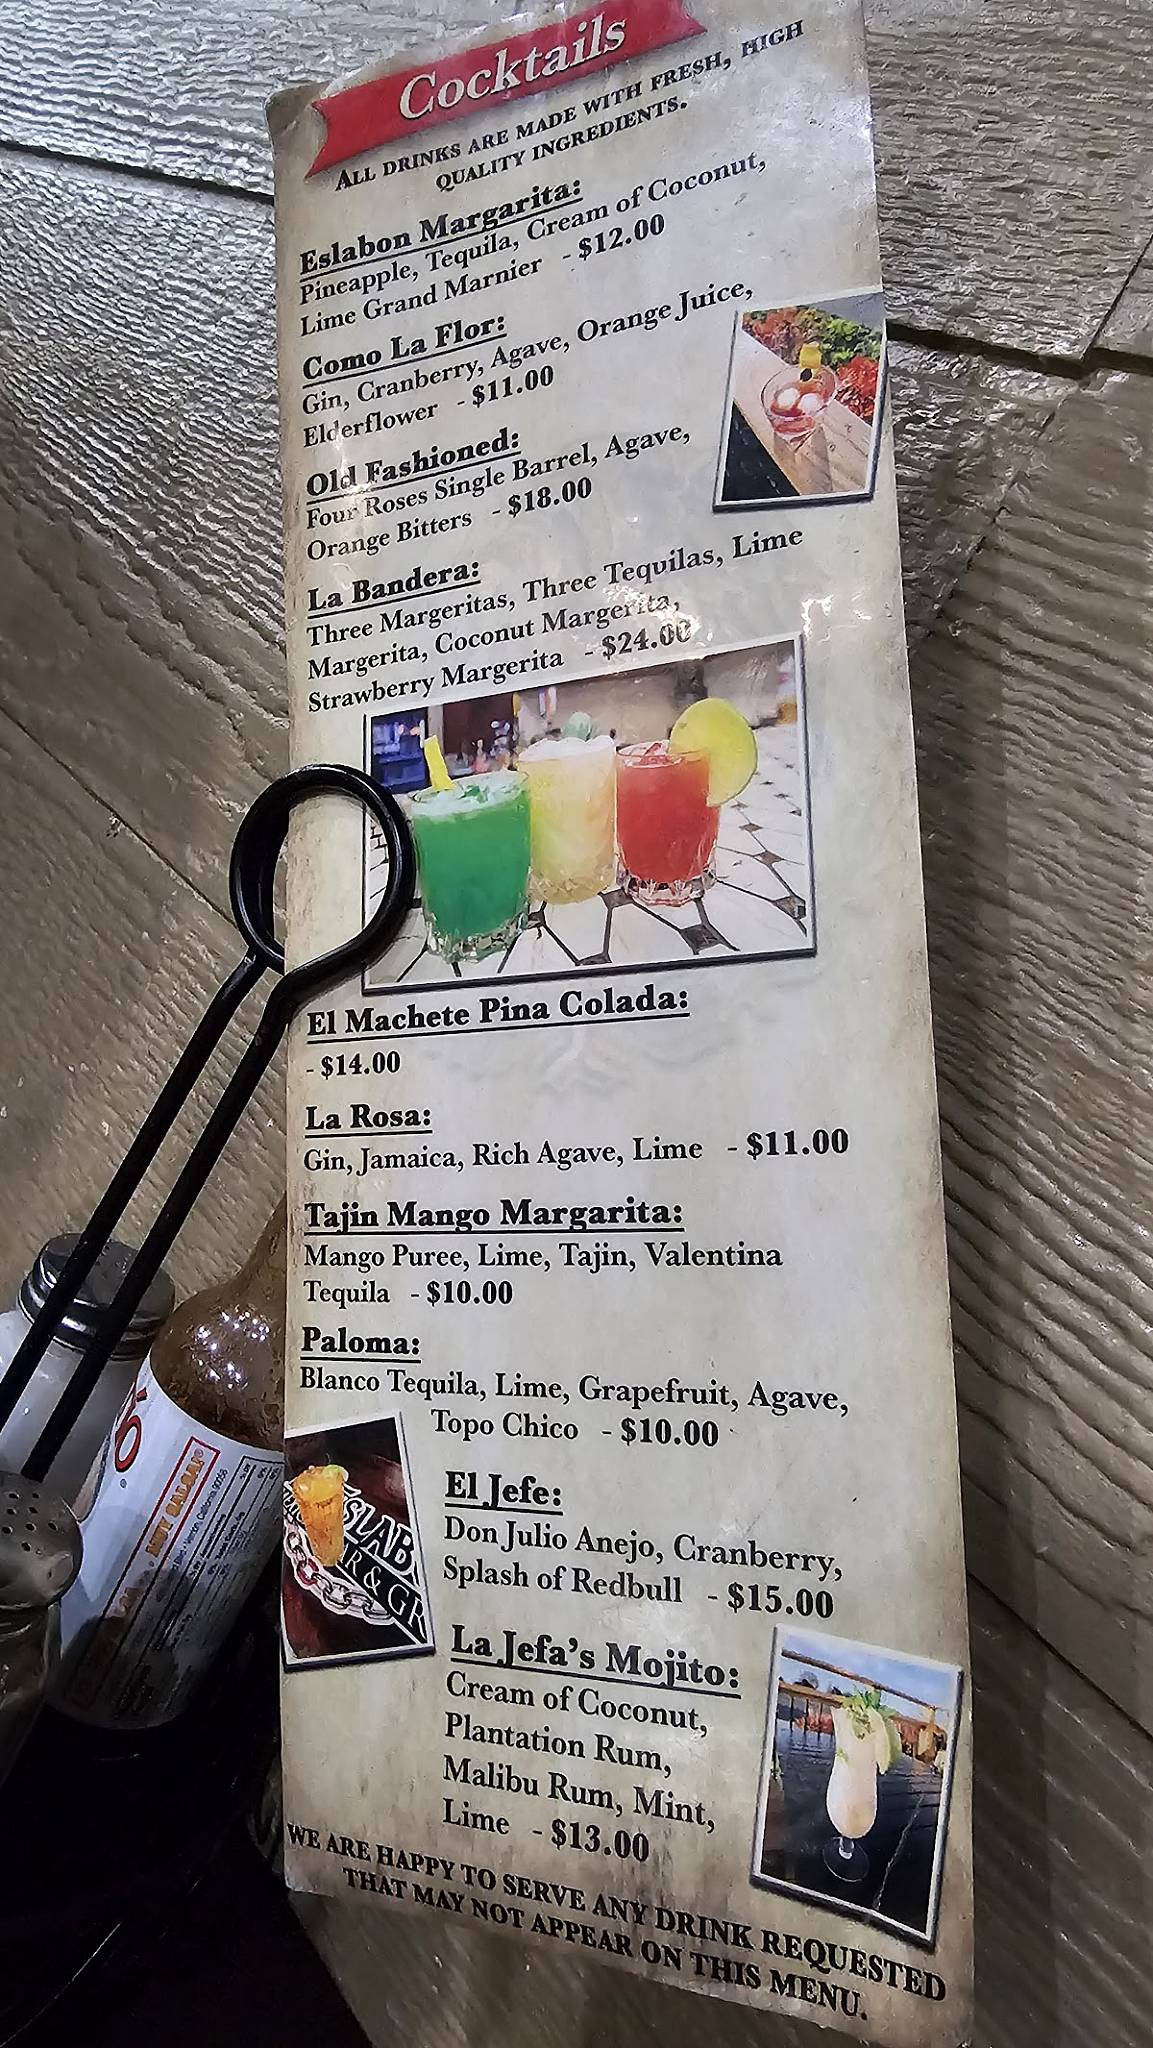 Cocktails
ALL DRINKS ARE MADE WITH FRESH, HIGH
QUALITY INGREDIENTS.
Eslabon Margarita:
Pineapple, Tequila, Cream of Coconut,
Lime Grand Marnier - $12.00
Como La Flor:
Gin, Cranberry, Agave, Orange Juice,
Elderflower - $11.00
Old Fashioned:
Four Roses Single Barrel, Agave,
Orange Bitters - $18.00
La Bandera:
Three Margeritas, Three Tequilas, Lime
Margerita, Coconut Margerita,
Strawberry Margerita - $24.00
El Machete Pina Colada:
- $14.00
La Rosa:
Gin, Jamaica, Rich Agave, Lime - $11.00
Tajin Mango Margarita:
Mango Puree, Lime, Tajin, Valentina
Tequila - $10.00
Paloma:
Blanco Tequila, Lime, Grapefruit, Agave,
Topo Chico - $10.00
El Jefe:
Don Julio Anejo, Cranberry,
Splash of Redbull - $15.00
La Jefa's Mojito:
Cream of Coconut,
Plantation Rum,
Malibu Rum, Mint,
Lime - $13.00
WE ARE HAPPY TO SERVE ANY DRINK REQUESTED
THAT MAY NOT APPEAR ON THIS MENU.
SLAB
R & GR